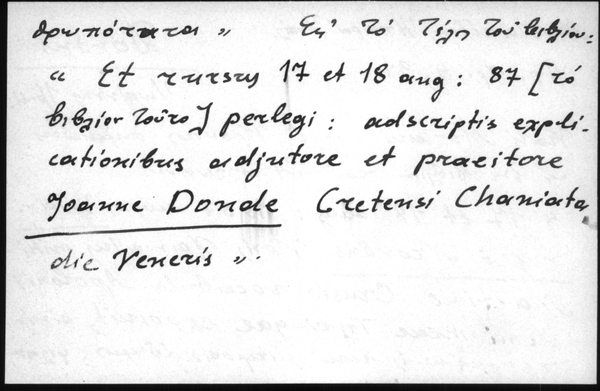 θρωπότατα „ Εἰς τὸ τέλος τοῦ βιβλίου:
“ Et rursus 17 et 18 aug: 87 [τὸ
βιβλίον τοῦτο] perlegi: adscriptis expli-
cationibus adjutore et praeitore
Joanne Donde Cretensi Chaniata
die Veneris „.